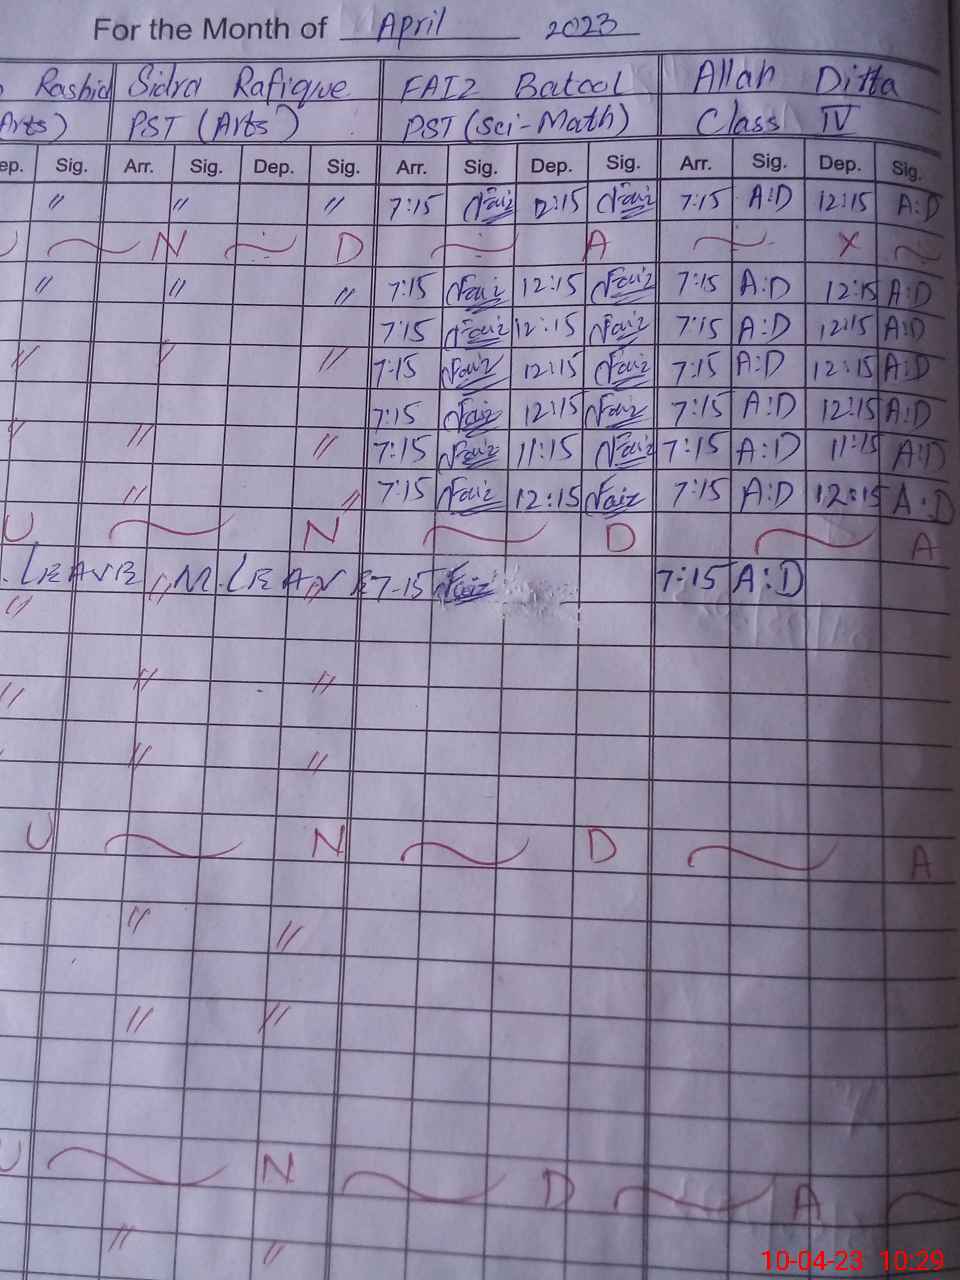 For the Month of April 2023
Rashid Sidra Rafique FAIZ Batool Allah Ditta
Arts) PST (Arts) PST (Sci-Math) Class IV
ep. Sig. Arr. Sig. Dep. Sig. Arr. Sig. Dep. Sig. Arr. Sig. Dep. Sig.
" " " 7:15 Faiz 12:15 Faiz 7:15 A:D 12:15 A:D
U ~ N ~ D ~ A ~ x ~
" " " 7:15 Faiz 12:15 Faiz 7:15 A:D 12:15 A:D
7:15 Faiz 12:15 Faiz 7:15 A:D 12:15 A:D
" " " 7:15 Faiz 12:15 Faiz 7:15 A:D 12:15 A:D
7:15 Faiz 12:15 Faiz 7:15 A:D 12:15 A:D
" " " 7:15 Faiz 11:15 Faiz 7:15 A:D 11:15 A:D
" " 7:15 Faiz 12:15 Faiz 7:15 A:D 12:15 A:D
U ~ N ~ D ~ A
. LEAVE M. LEAVE 7-15 Faiz 7:15 A:D
" " "
" " "
" "
U ~ N ~ D ~ A
" "
" "
U ~ N ~ D ~ A ~
" "
10-04-23 10:29